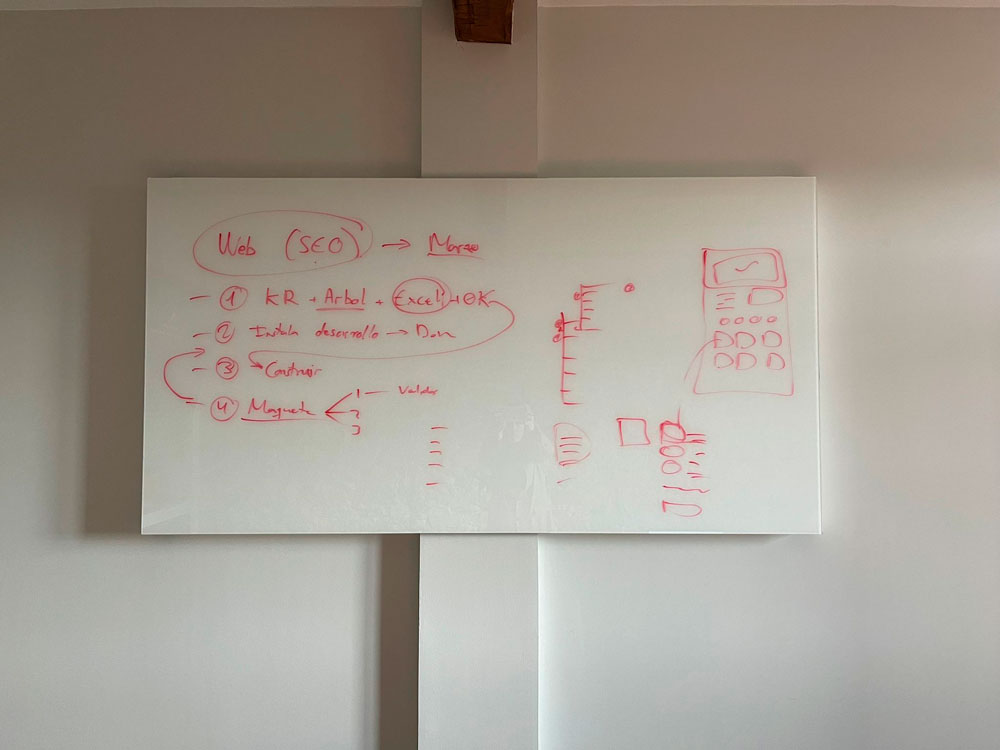 Web (SEO) → Marzo
– ① KR + Arbol + Excel + OK
– ② Instala desarrollo → Dan
– ③ Construir
– ④ Maqueta
1 — Validar
2
3